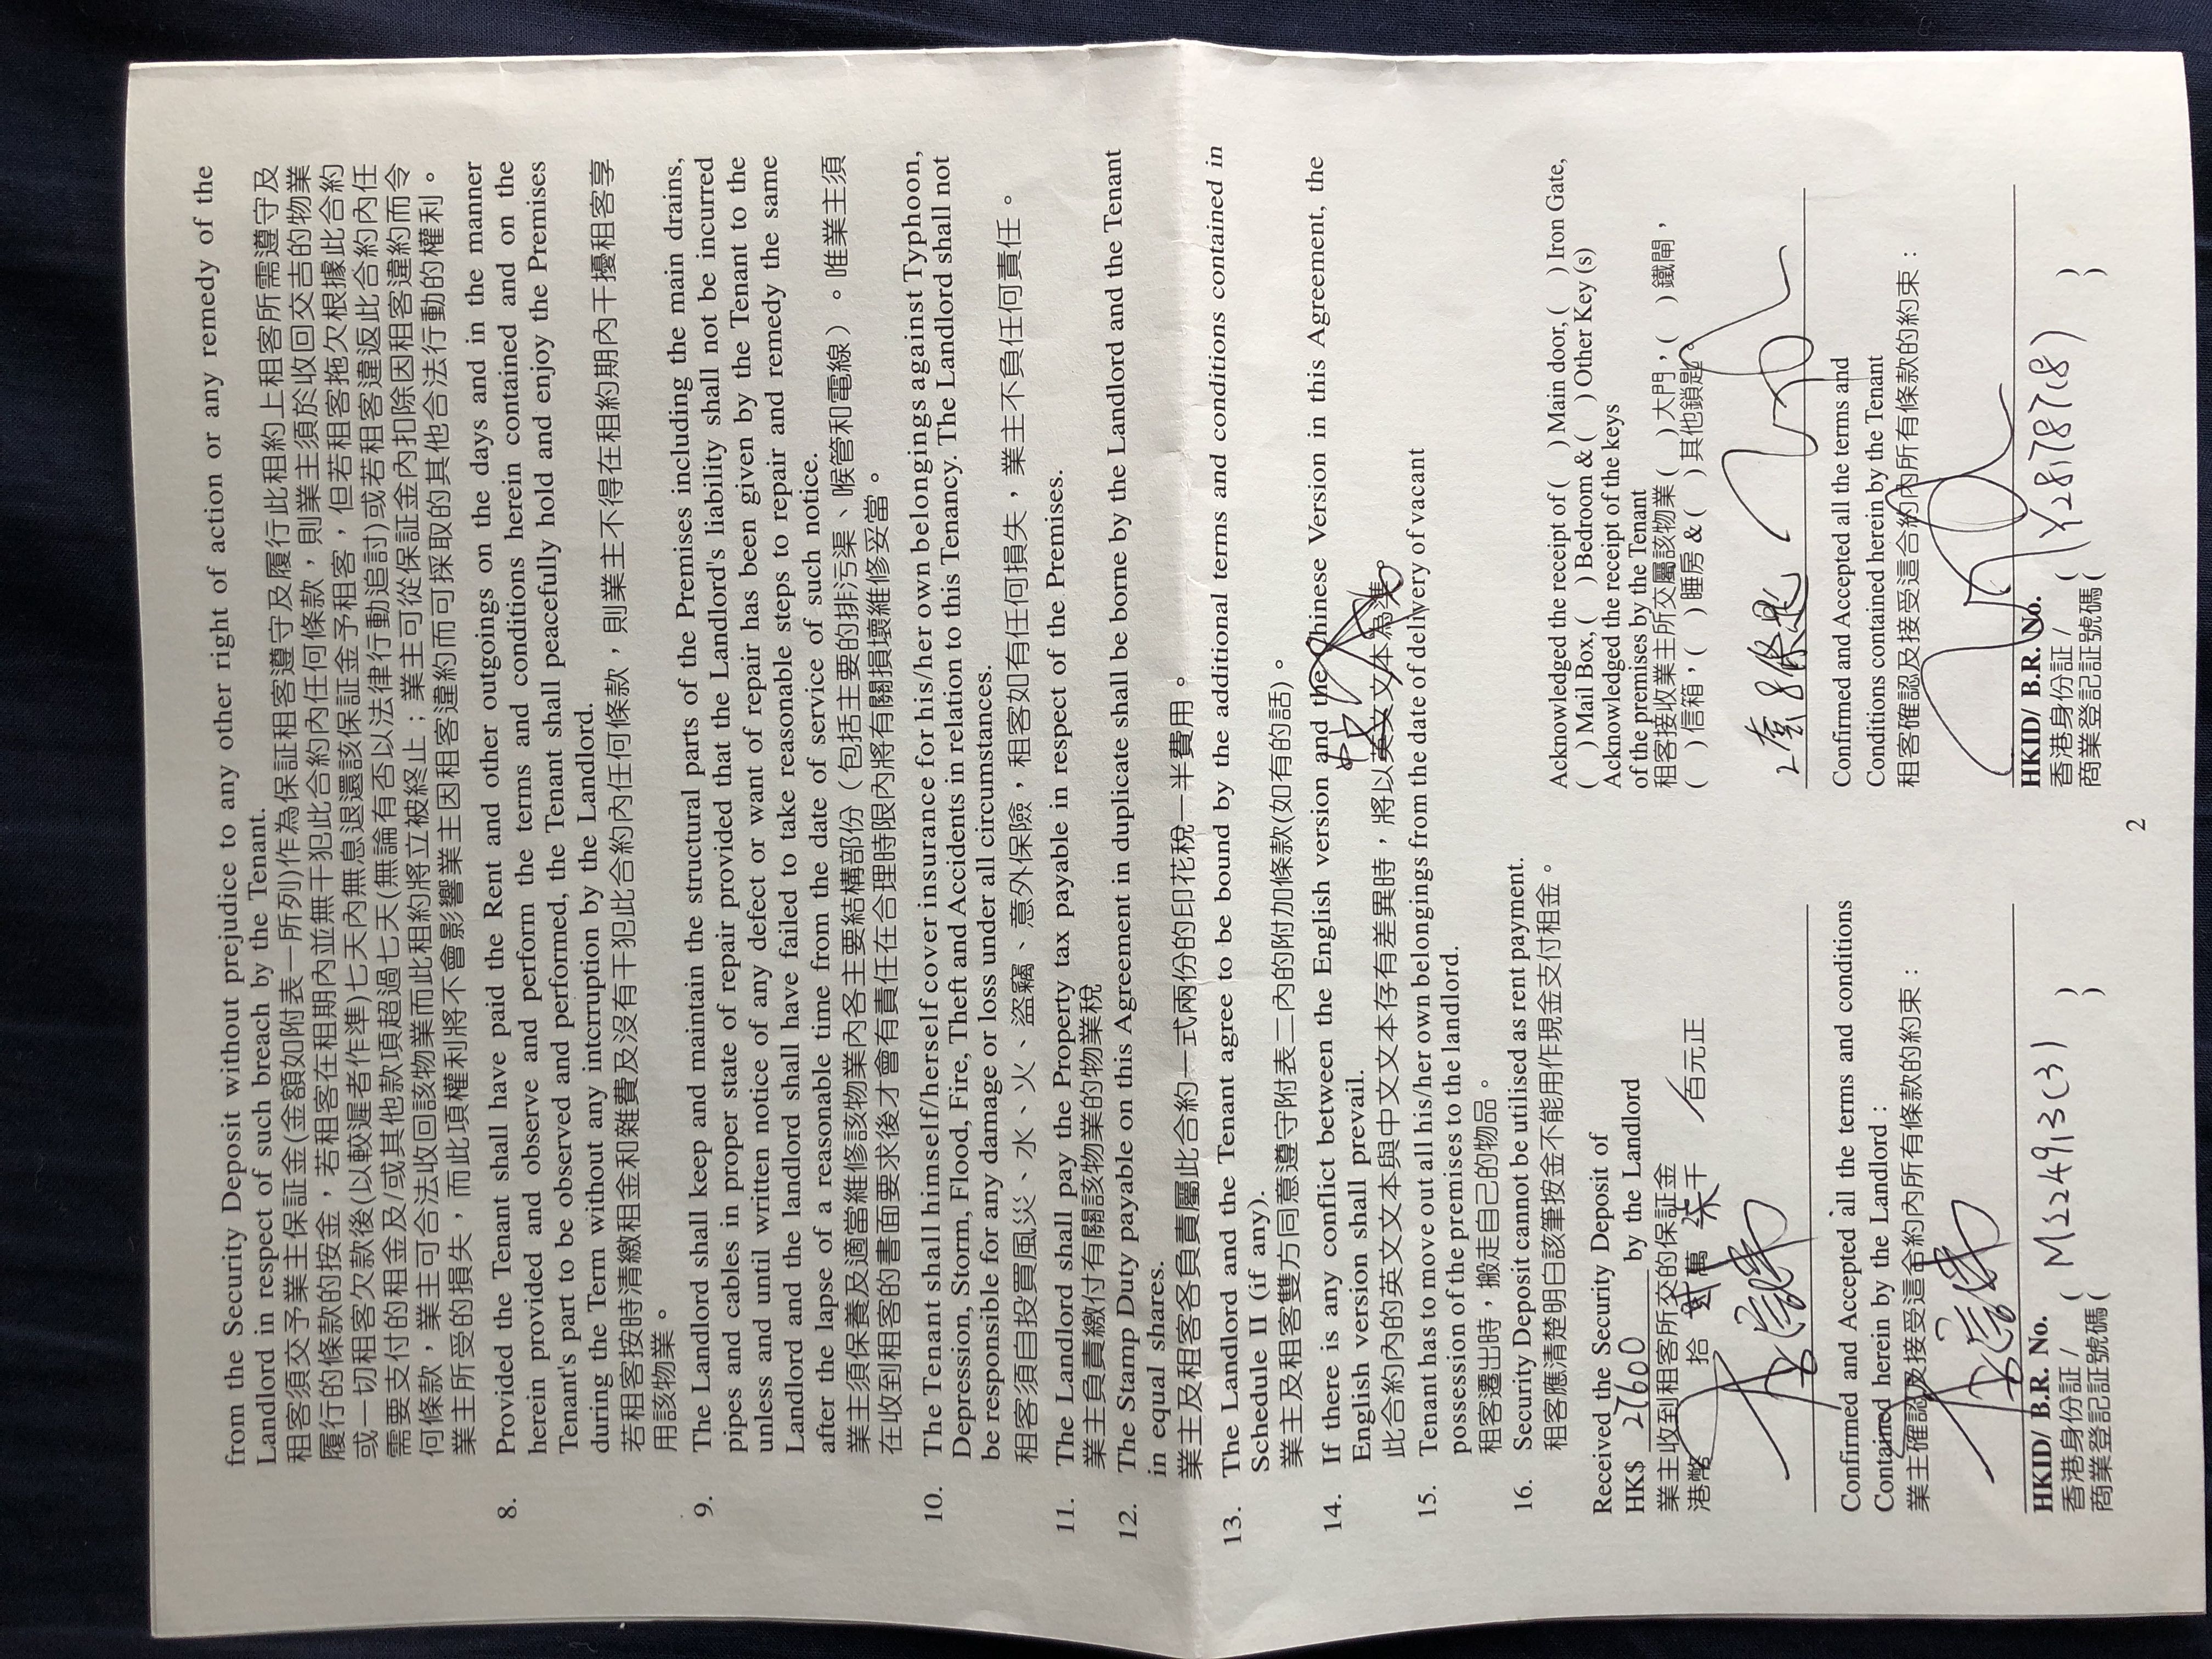 from the Security Deposit without prejudice to any other right of action or any remedy of the
Landlord in respect of such breach by the Tenant.
租客須交予業主保証金(金額如附表一所列)作為保証租客遵守及履行此租約上租客所需遵守及
履行的條款的按金，若租客在租期內並無干犯此合約內任何條款，則業主須於收回交吉的物業
或一切租客欠款後(以較遲者作準)七天內無息退還該保証金予租客，但若租客拖欠根據此合約
需要支付的租金及/或其他款項超過七天(無論有否以法律行動追討)或若租客違返此合約內任
何條款，業主可合法收回該物業而此租約將立被終止；業主可從保証金內扣除因租客違約而令
業主所受的損失，而此項權利將不會影響業主因租客違約而可採取的其他合法行動的權利。
8. Provided the Tenant shall have paid the Rent and other outgoings on the days and in the manner
herein provided and observe and perform the terms and conditions herein contained and on the
Tenant's part to be observed and performed, the Tenant shall peacefully hold and enjoy the Premises
during the Term without any interruption by the Landlord.
若租客按時清繳租金和雜費及沒有干犯此合約內任何條款，則業主不得在租約期內干擾租客享
用該物業。
9. The Landlord shall keep and maintain the structural parts of the Premises including the main drains,
pipes and cables in proper state of repair provided that the Landlord's liability shall not be incurred
unless and until written notice of any defect or want of repair has been given by the Tenant to the
Landlord and the landlord shall have failed to take reasonable steps to repair and remedy the same
after the lapse of a reasonable time from the date of service of such notice.
業主須保養及適當維修該物業內各主要結構部份（包括主要的排污渠、喉管和電線）。唯業主須
在收到租客的書面要求後才會有責任在合理時限內將有關損壞維修妥當。
10. The Tenant shall himself/herself cover insurance for his/her own belongings against Typhoon,
Depression, Storm, Flood, Fire, Theft and Accidents in relation to this Tenancy. The Landlord shall not
be responsible for any damage or loss under all circumstances.
租客須自投買風災、水、火、盜竊、意外保險，租客如有任何損失，業主不負任何責任。
11. The Landlord shall pay the Property tax payable in respect of the Premises.
業主負責繳付有關該物業的物業稅
12. The Stamp Duty payable on this Agreement in duplicate shall be borne by the Landlord and the Tenant
in equal shares.
業主及租客各負責屬此合約一式兩份的印花稅一半費用。
13. The Landlord and the Tenant agree to be bound by the additional terms and conditions contained in
Schedule II (if any).
業主及租客雙方同意遵守附表二內的附加條款(如有的話)。
14. If there is any conflict between the English version and the Chinese Version in this Agreement, the
English version shall prevail.
中文
此合約內的英文文本與中文文本存有差異時，將以英文文本為準。
15. Tenant has to move out all his/her own belongings from the date of delivery of vacant
possession of the premises to the landlord.
租客遷出時，搬走自己的物品。
16. Security Deposit cannot be utilised as rent payment.
租客應清楚明白該筆按金不能用作現金支付租金。
Received the Security Deposit of
HK$ 27600 by the Landlord
業主收到租客所交的保証金
港幣 拾 貳萬 柒千 百元正
Confirmed and Accepted all the terms and conditions
Contained herein by the Landlord :
業主確認及接受這合約內所有條款的約束：
HKID/ B.R. No.
香港身份証 /
商業登記証號碼( M224913(3) )
Acknowledged the receipt of ( ) Main door, ( ) Iron Gate,
( ) Mail Box, ( ) Bedroom & ( ) Other Key (s)
Acknowledged the receipt of the keys
of the premises by the Tenant
租客接收業主所交屬該物業 ( ) 大門，( ) 鐵閘，
( ) 信箱，( ) 睡房 & ( ) 其他鎖匙。
Confirmed and Accepted all the terms and
Conditions contained herein by the Tenant
租客確認及接受這合約內所有條款的約束：
HKID/ B.R. No.
香港身份証 /
商業登記証號碼( Y281787(8) )
2